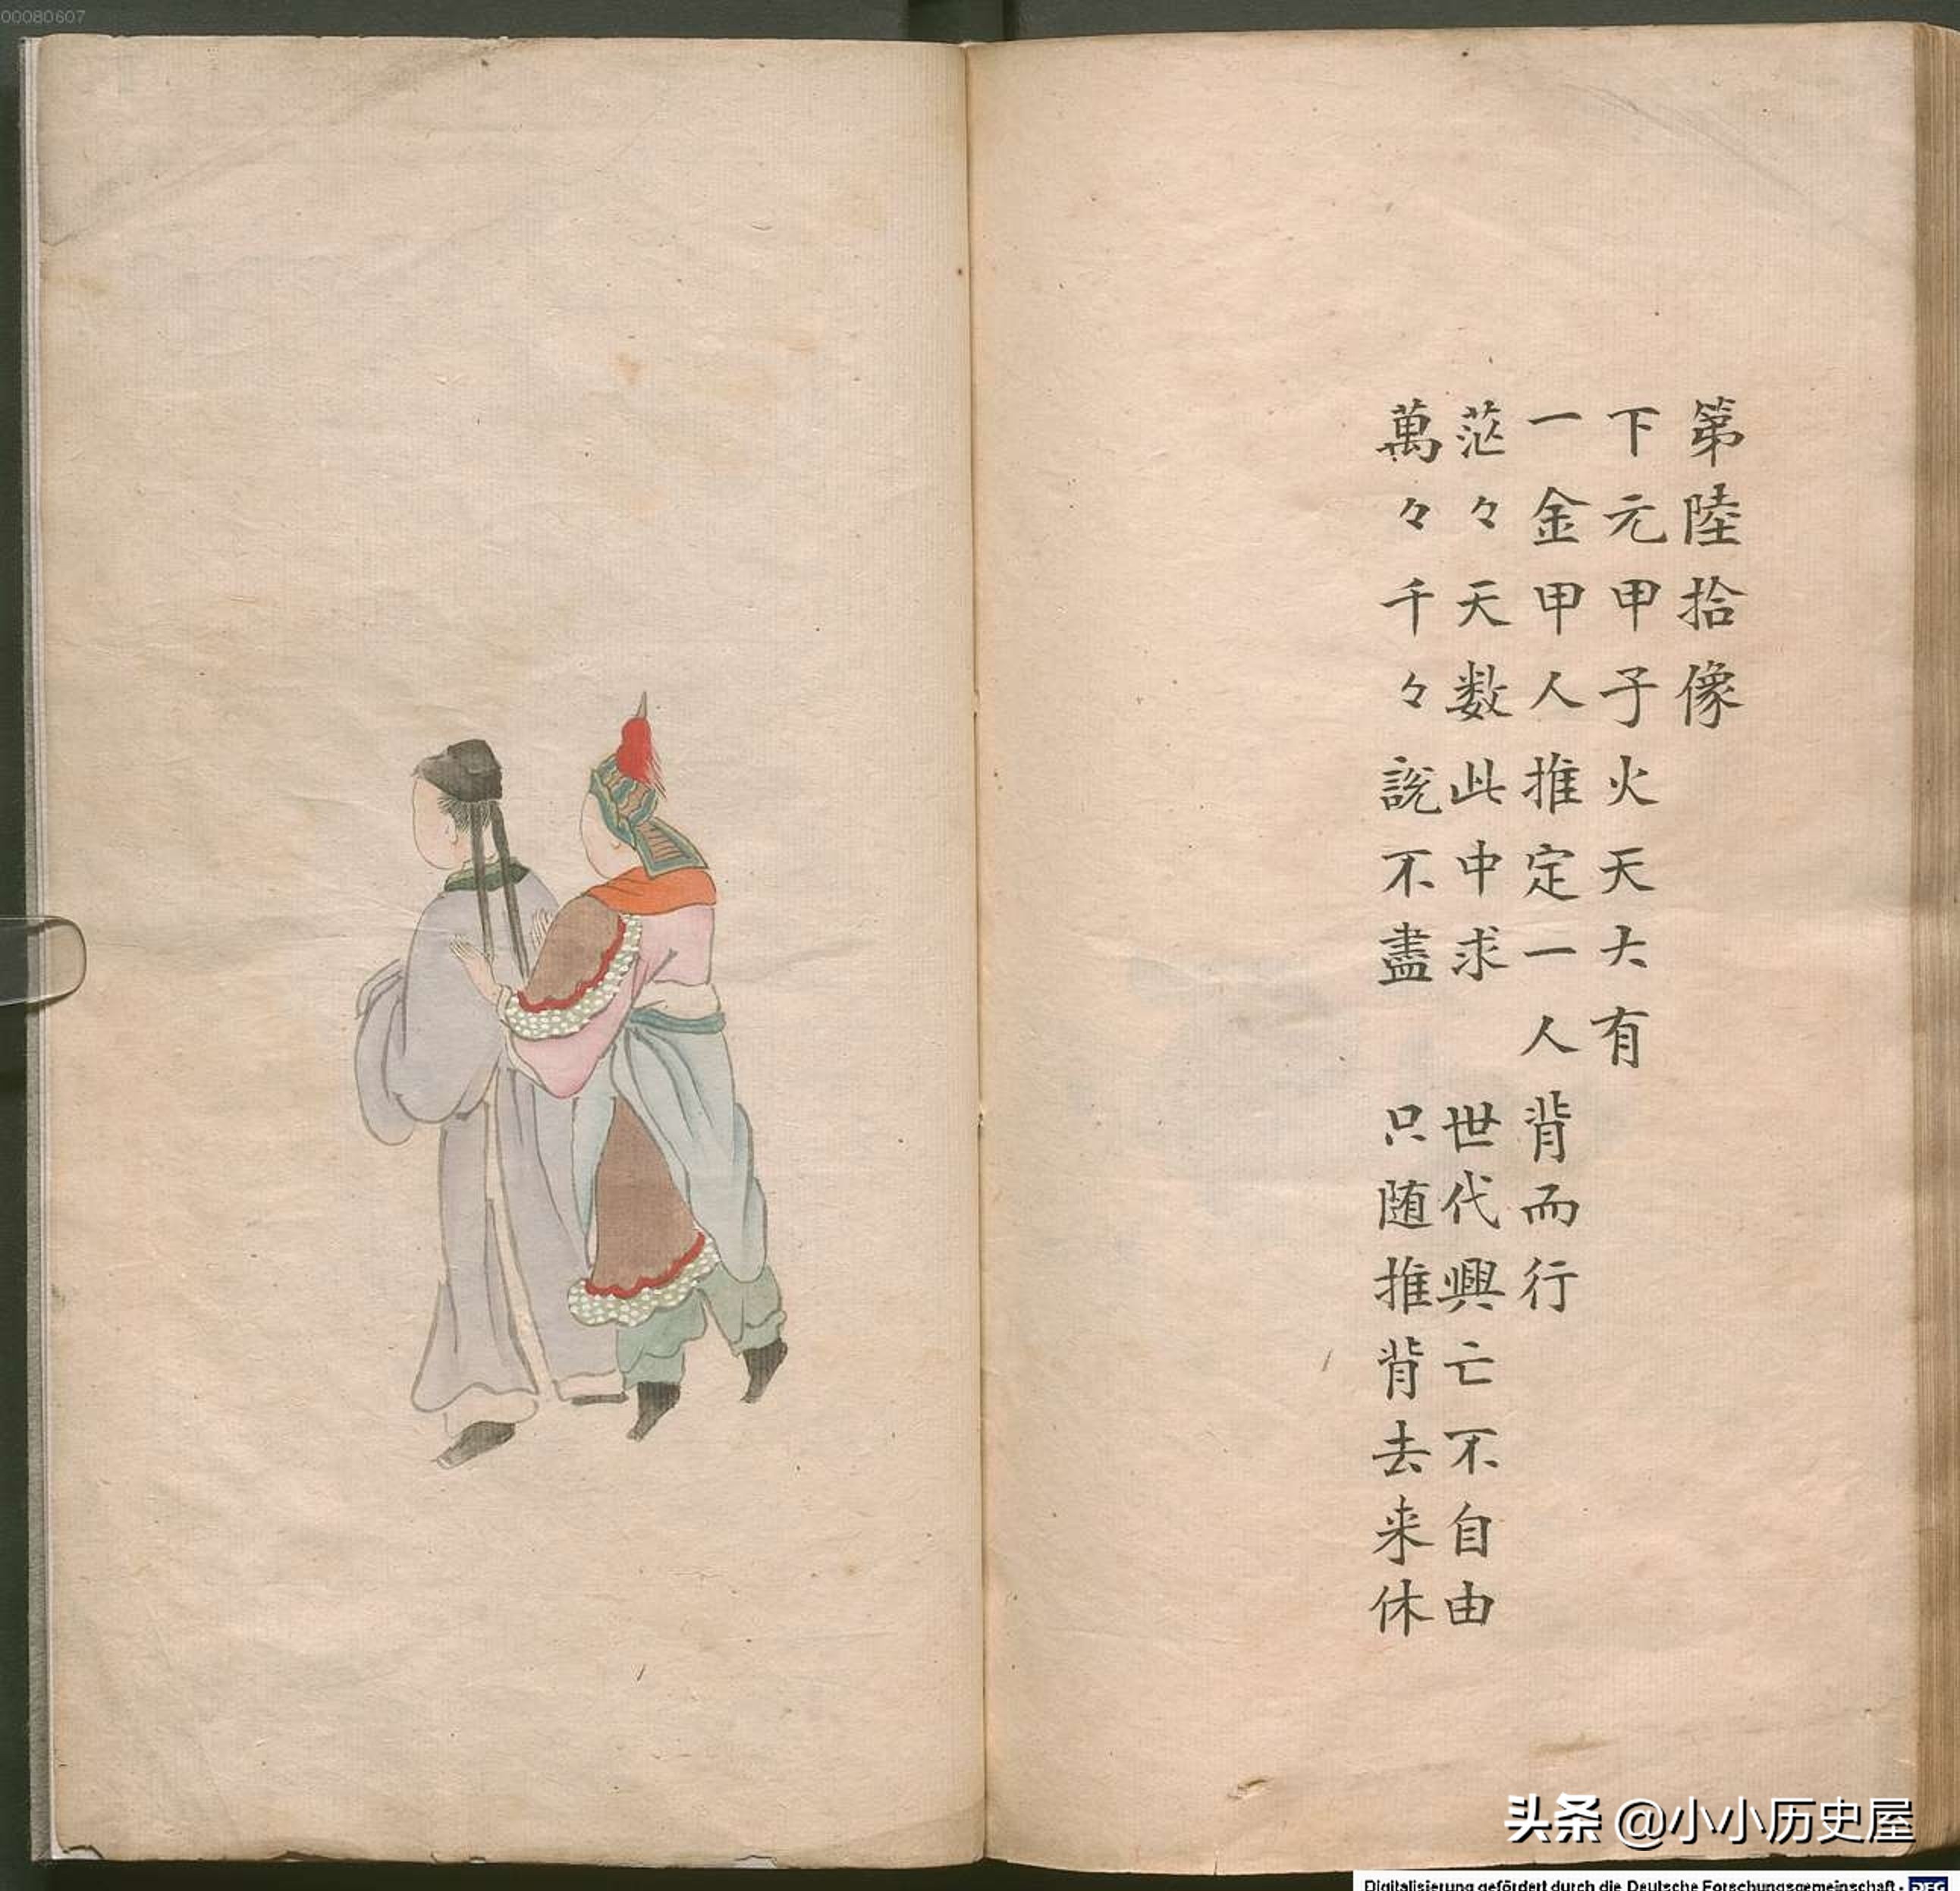 00080607
第陸拾像
下元甲子火天大有
一金甲人推定一人背而行
茫々天数此中求 世代興亡不自由
萬々千々說不盡 只随推背去来休
头条 @小小历史屋
Digitalisierung gefördert durch die Deutsche Forschungsgemeinschaft - DFG